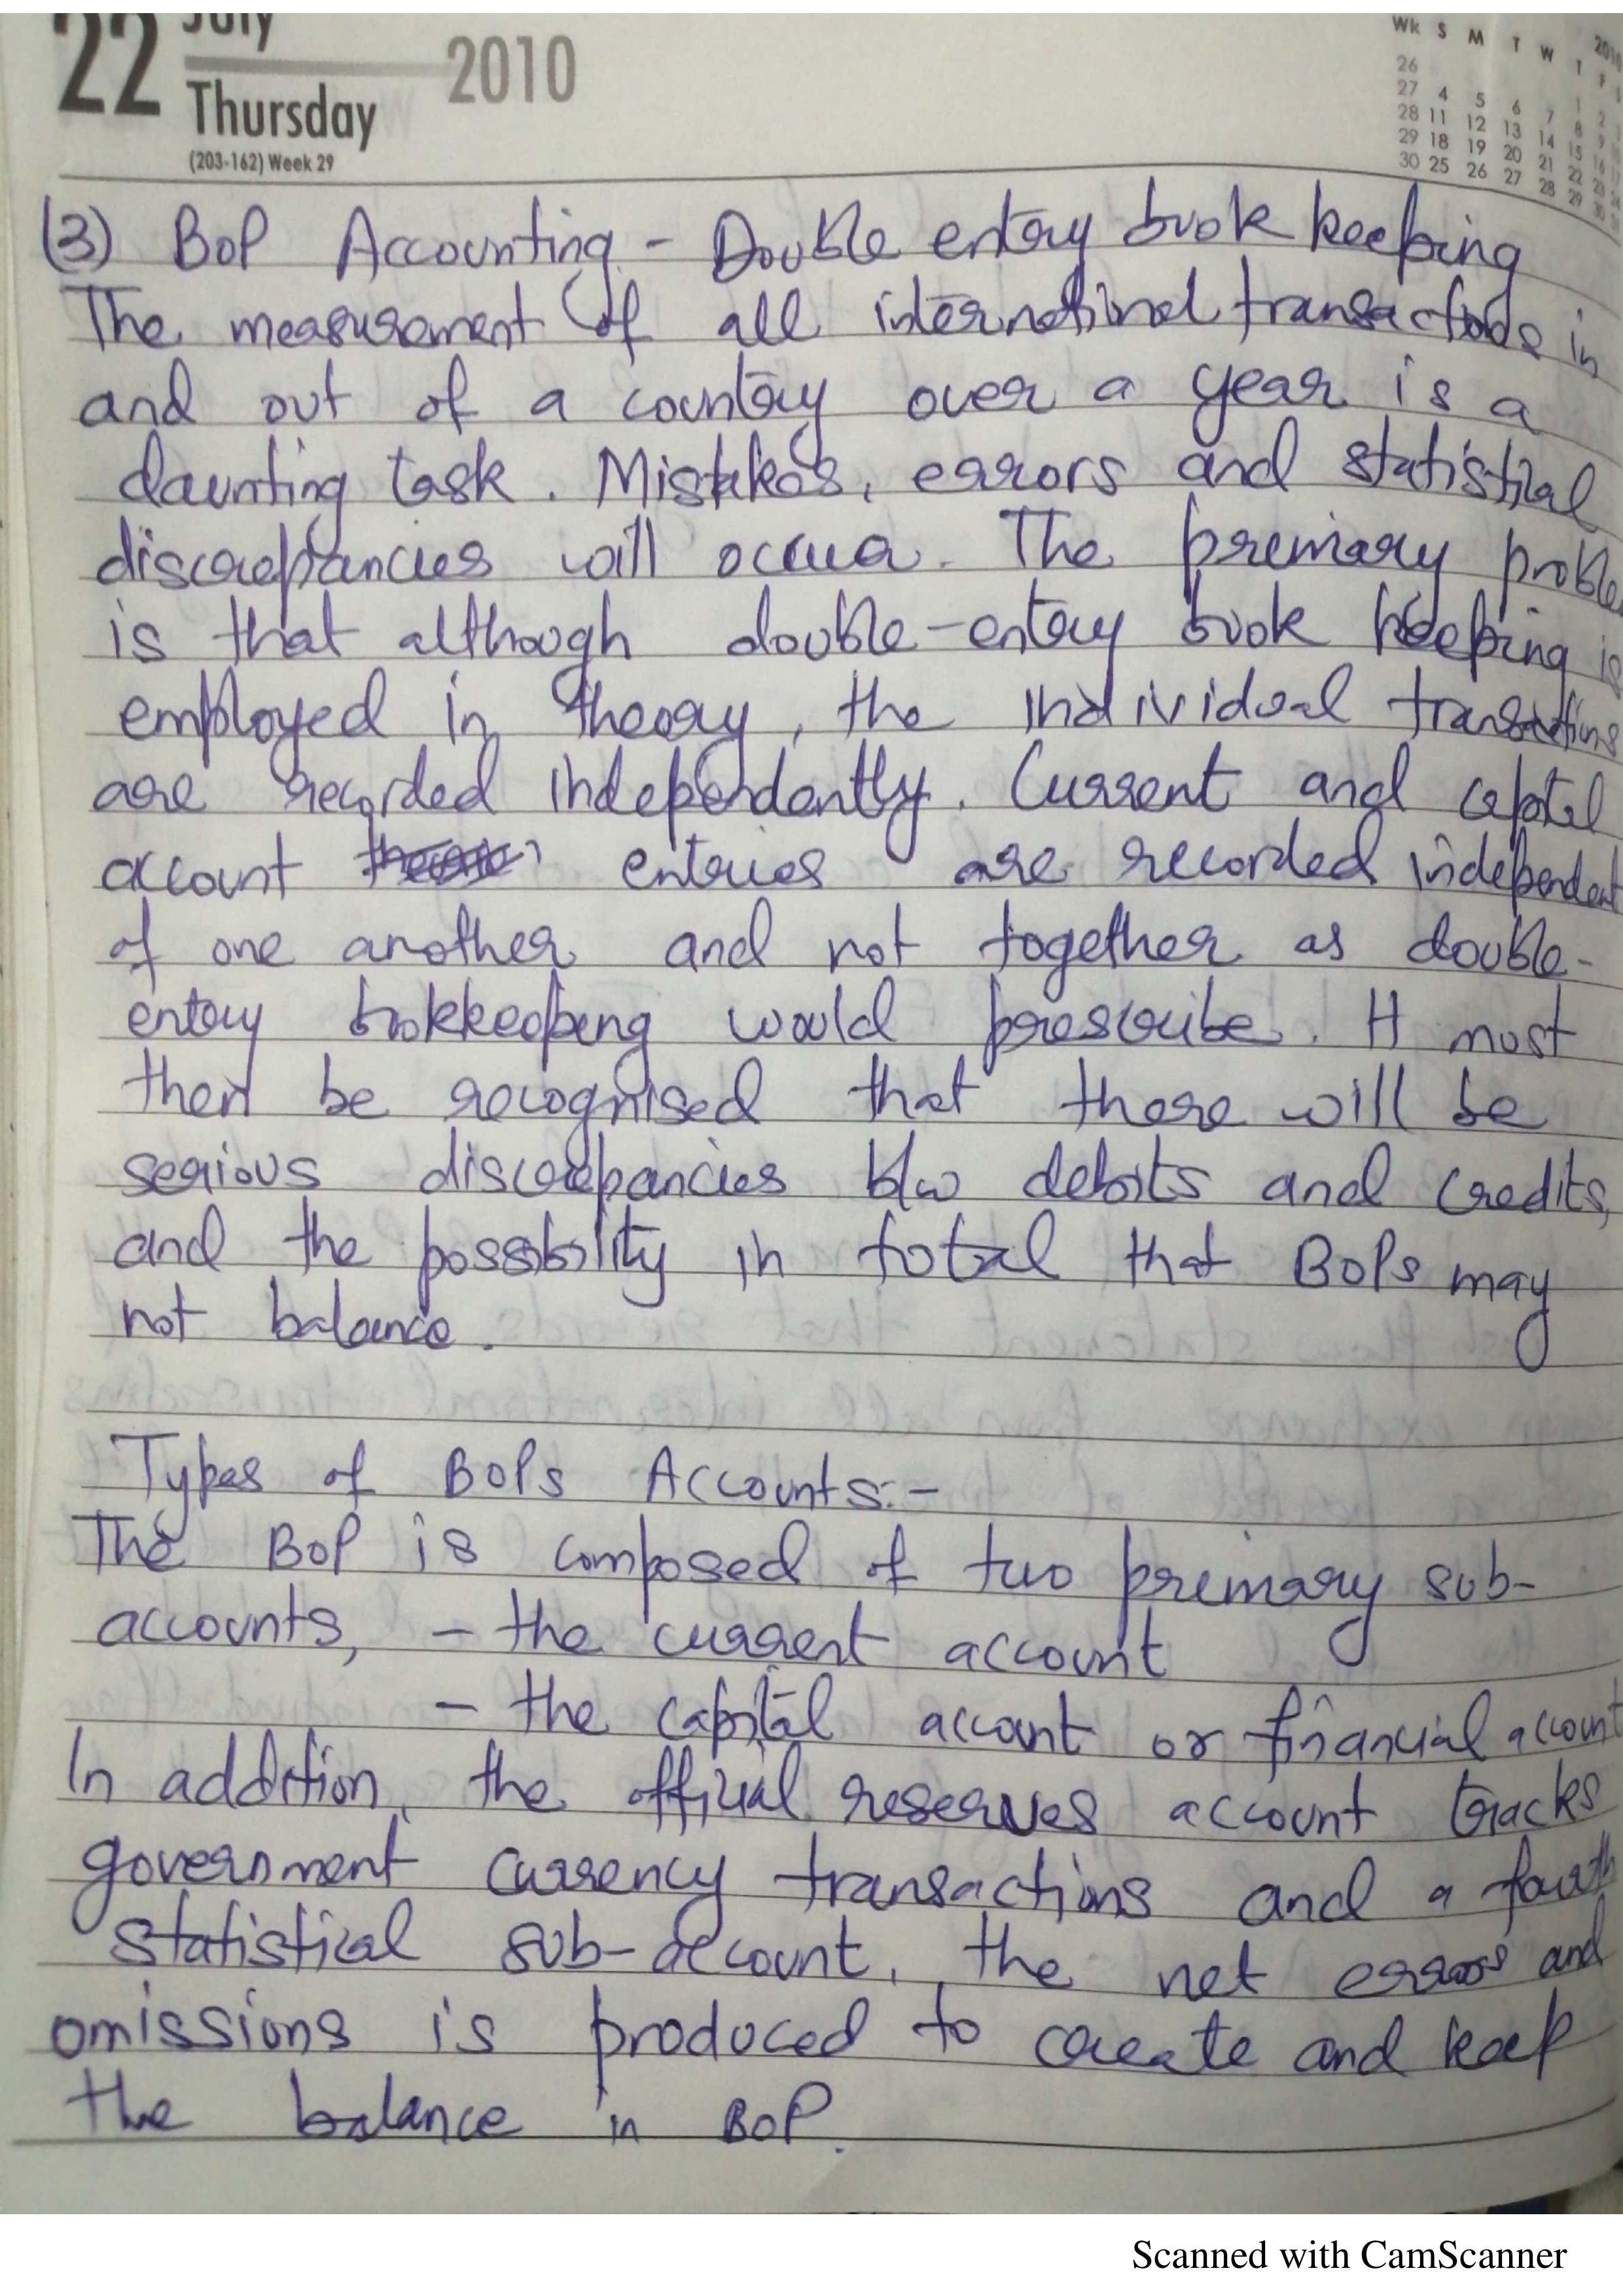 22 July 2010
Thursday
(203-162) Week 29
Wk S M T W T F
26 1 2
27 4 5 6 7 8 9
28 11 12 13 14 15 16
29 18 19 20 21 22 23
30 25 26 27 28 29 30
(3) BoP Accounting - Double entry book keeping
The measurement of all international transactions in
and out of a country over a year is a
daunting task. Mistakes, errors and statistical
discrepancies will occur. The primary proble
is that although double-entry book keeping is
employed in theory, the individual transactions
are recorded independently. Current and capital
account entries are recorded independent
of one another and not together as double-
entry bookkeeping would prescribe. It must
then be recognised that there will be
serious discrepancies b/w debits and credits,
and the possibility in total that BoPs may
not balance.
Types of BoPs Accounts:-
The BoP is composed of two primary sub-
accounts, - the current account
- the capital account or financial account
In addition, the official reserves account tracks
government currency transactions and a fourth
statistical sub-account, the net errors and
omissions is produced to create and keep
the balance in BoP.
Scanned with CamScanner